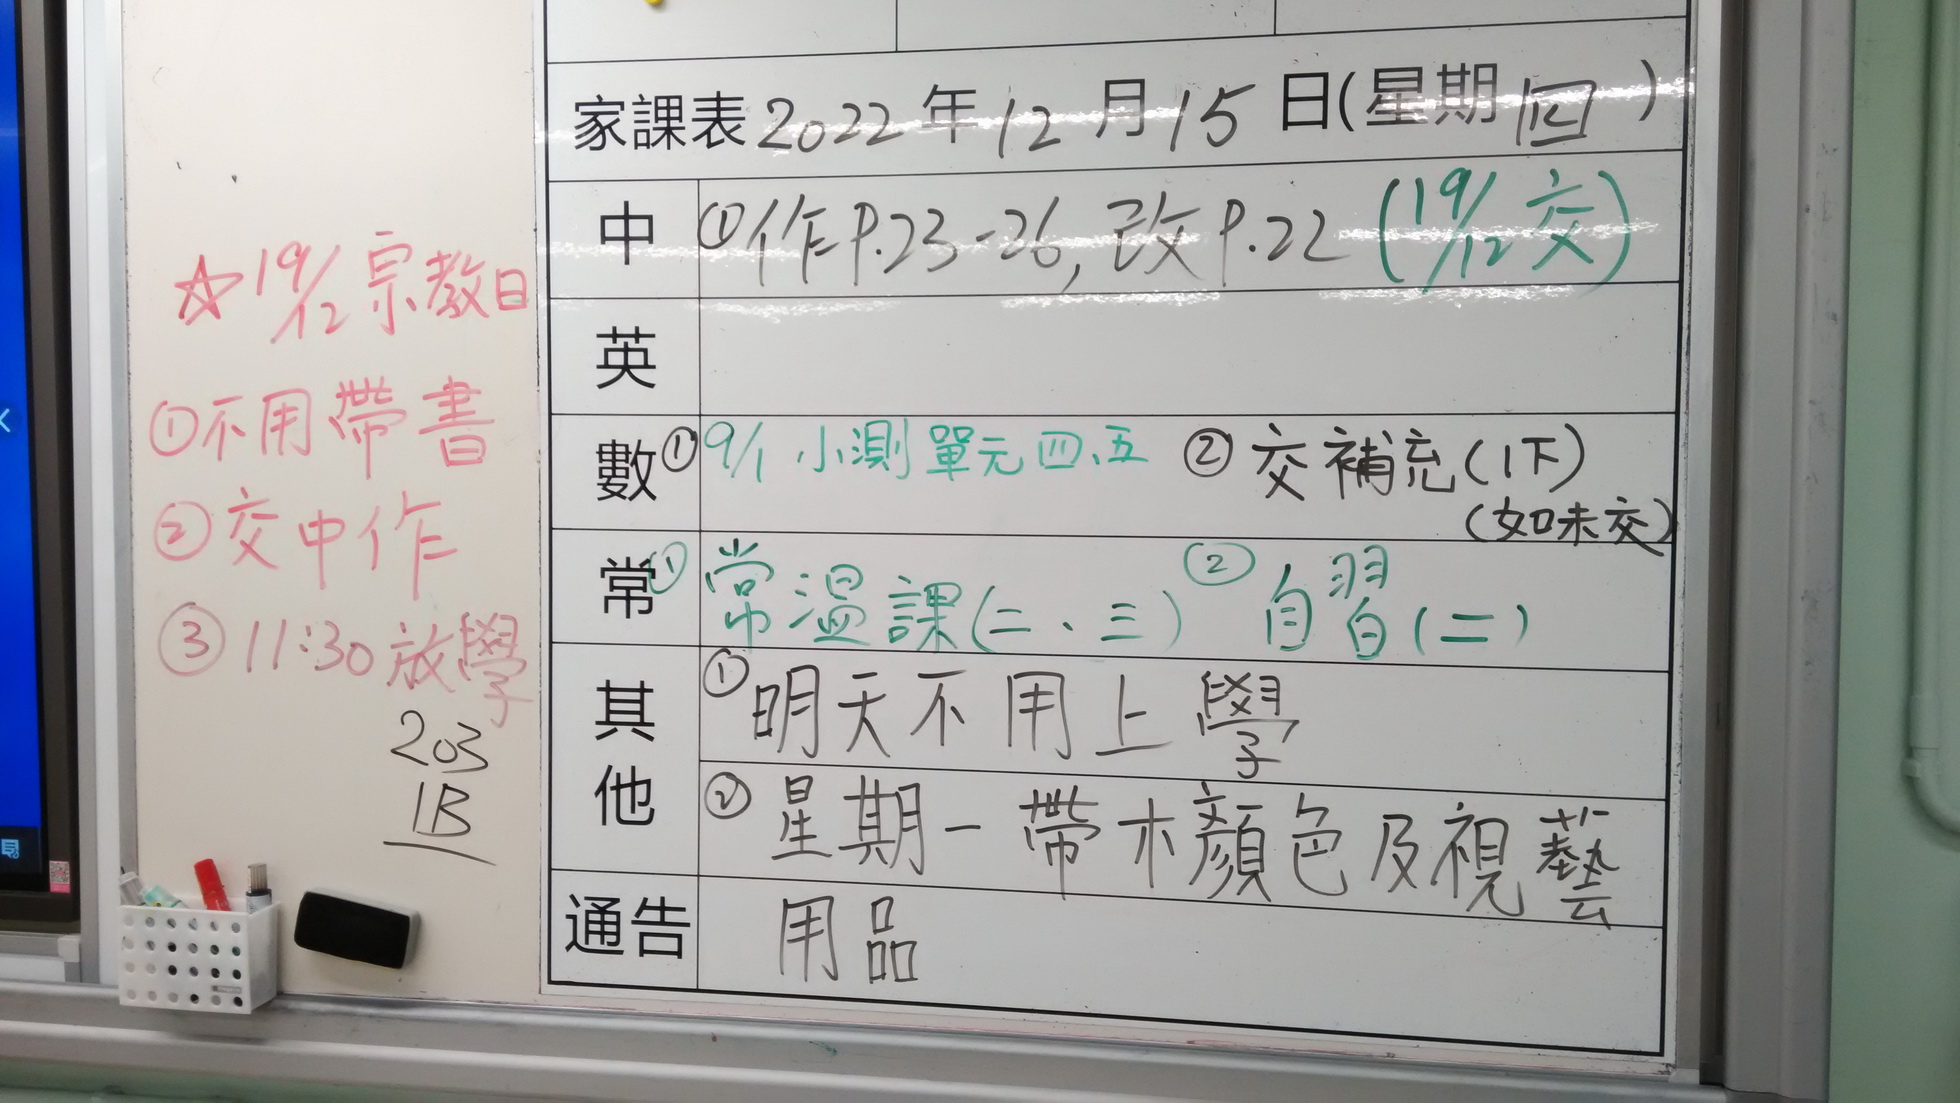 ☆19/12 宗教日
①不用帶書
②交中作
③11:30放學
203
1B
家課表2022年12月15日(星期四)
中 ①作P.23-26, 改P.22 (19/12交)
英
數 ①9/1 小測單元四、五 ②交補充(1下)
(如未交)
常 ①常溫課(二、三) ②自習(二)
其他 ①明天不用上學
②星期一帶木顏色及視藝
通告 用品